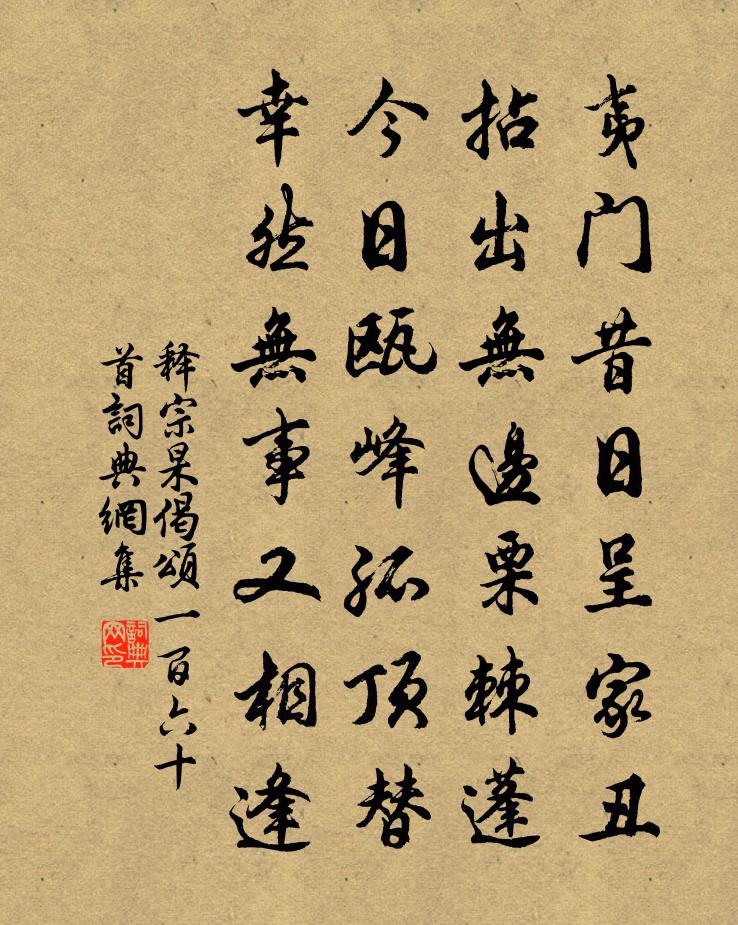 夷门昔日呈家丑
拈出無邊栗棘蓬
今日瓯峰孤顶替
幸然無事又相逢
释宗杲偈颂一百六十
首詞典網集
詞典网印